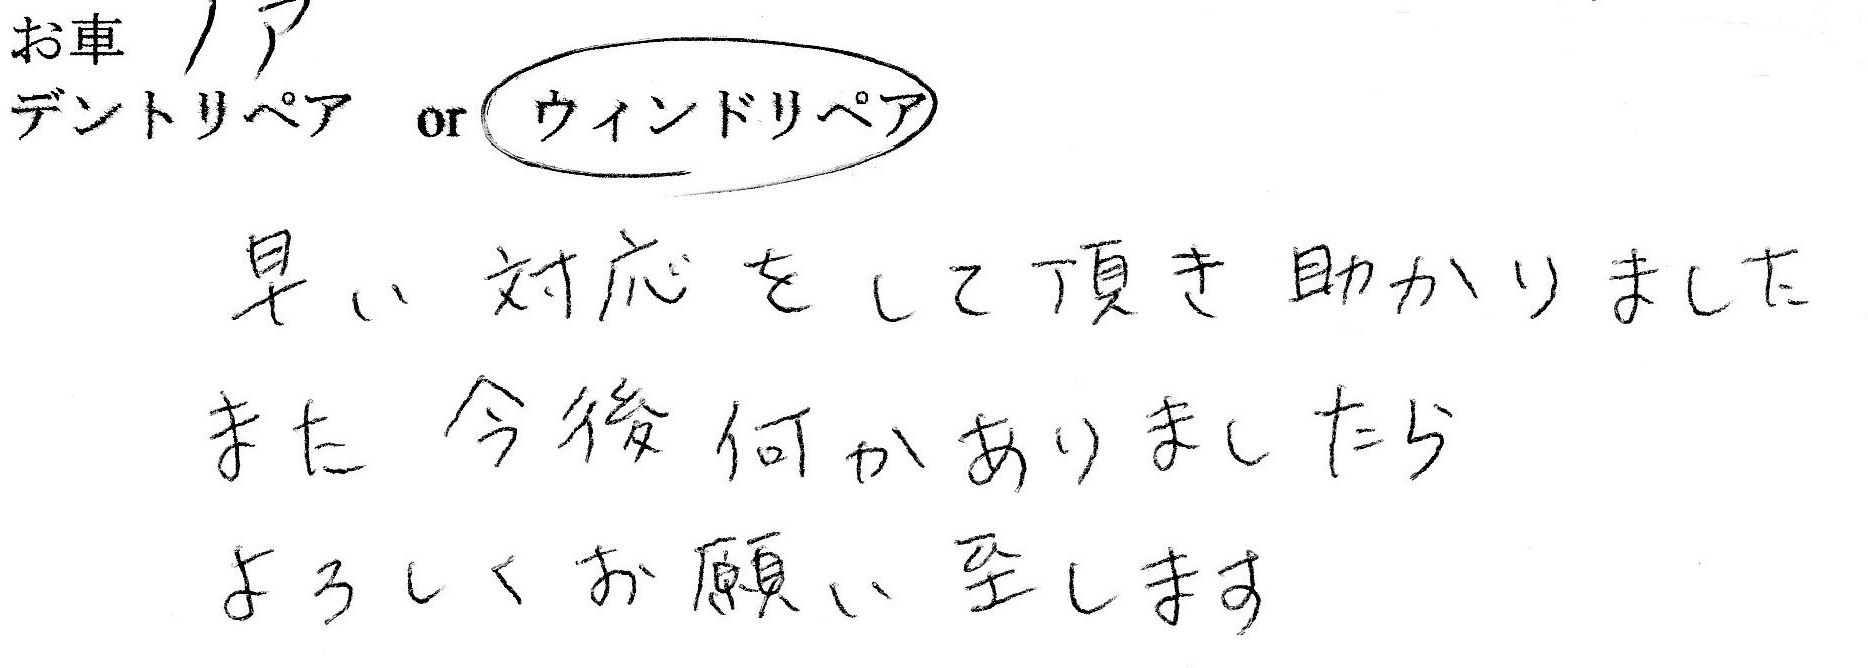 お車 ノア
デントリペア or ウィンドリペア
早い対応をして頂き助かりました
また今後何かありましたら
よろしくお願い至します